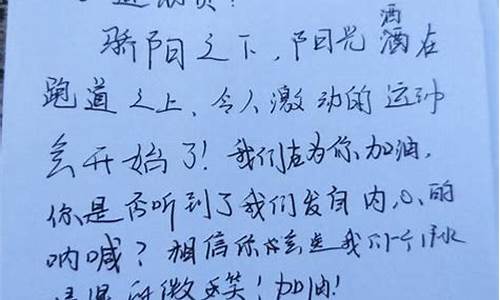 洒
骄阳之下，阳光酒在
跑道之上，令人激动的运动
会开始了！我们在为你加油，
你是否听到了我们发自内心的
呐喊？相信你
微笑！加油！